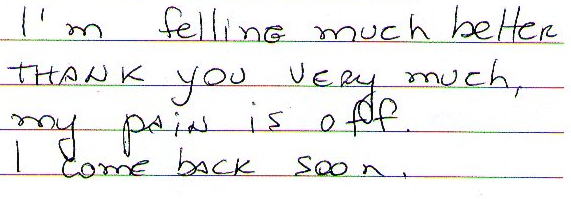 I'm felling much better
THANK you VERY much,
my pain is off.
I come back soon.